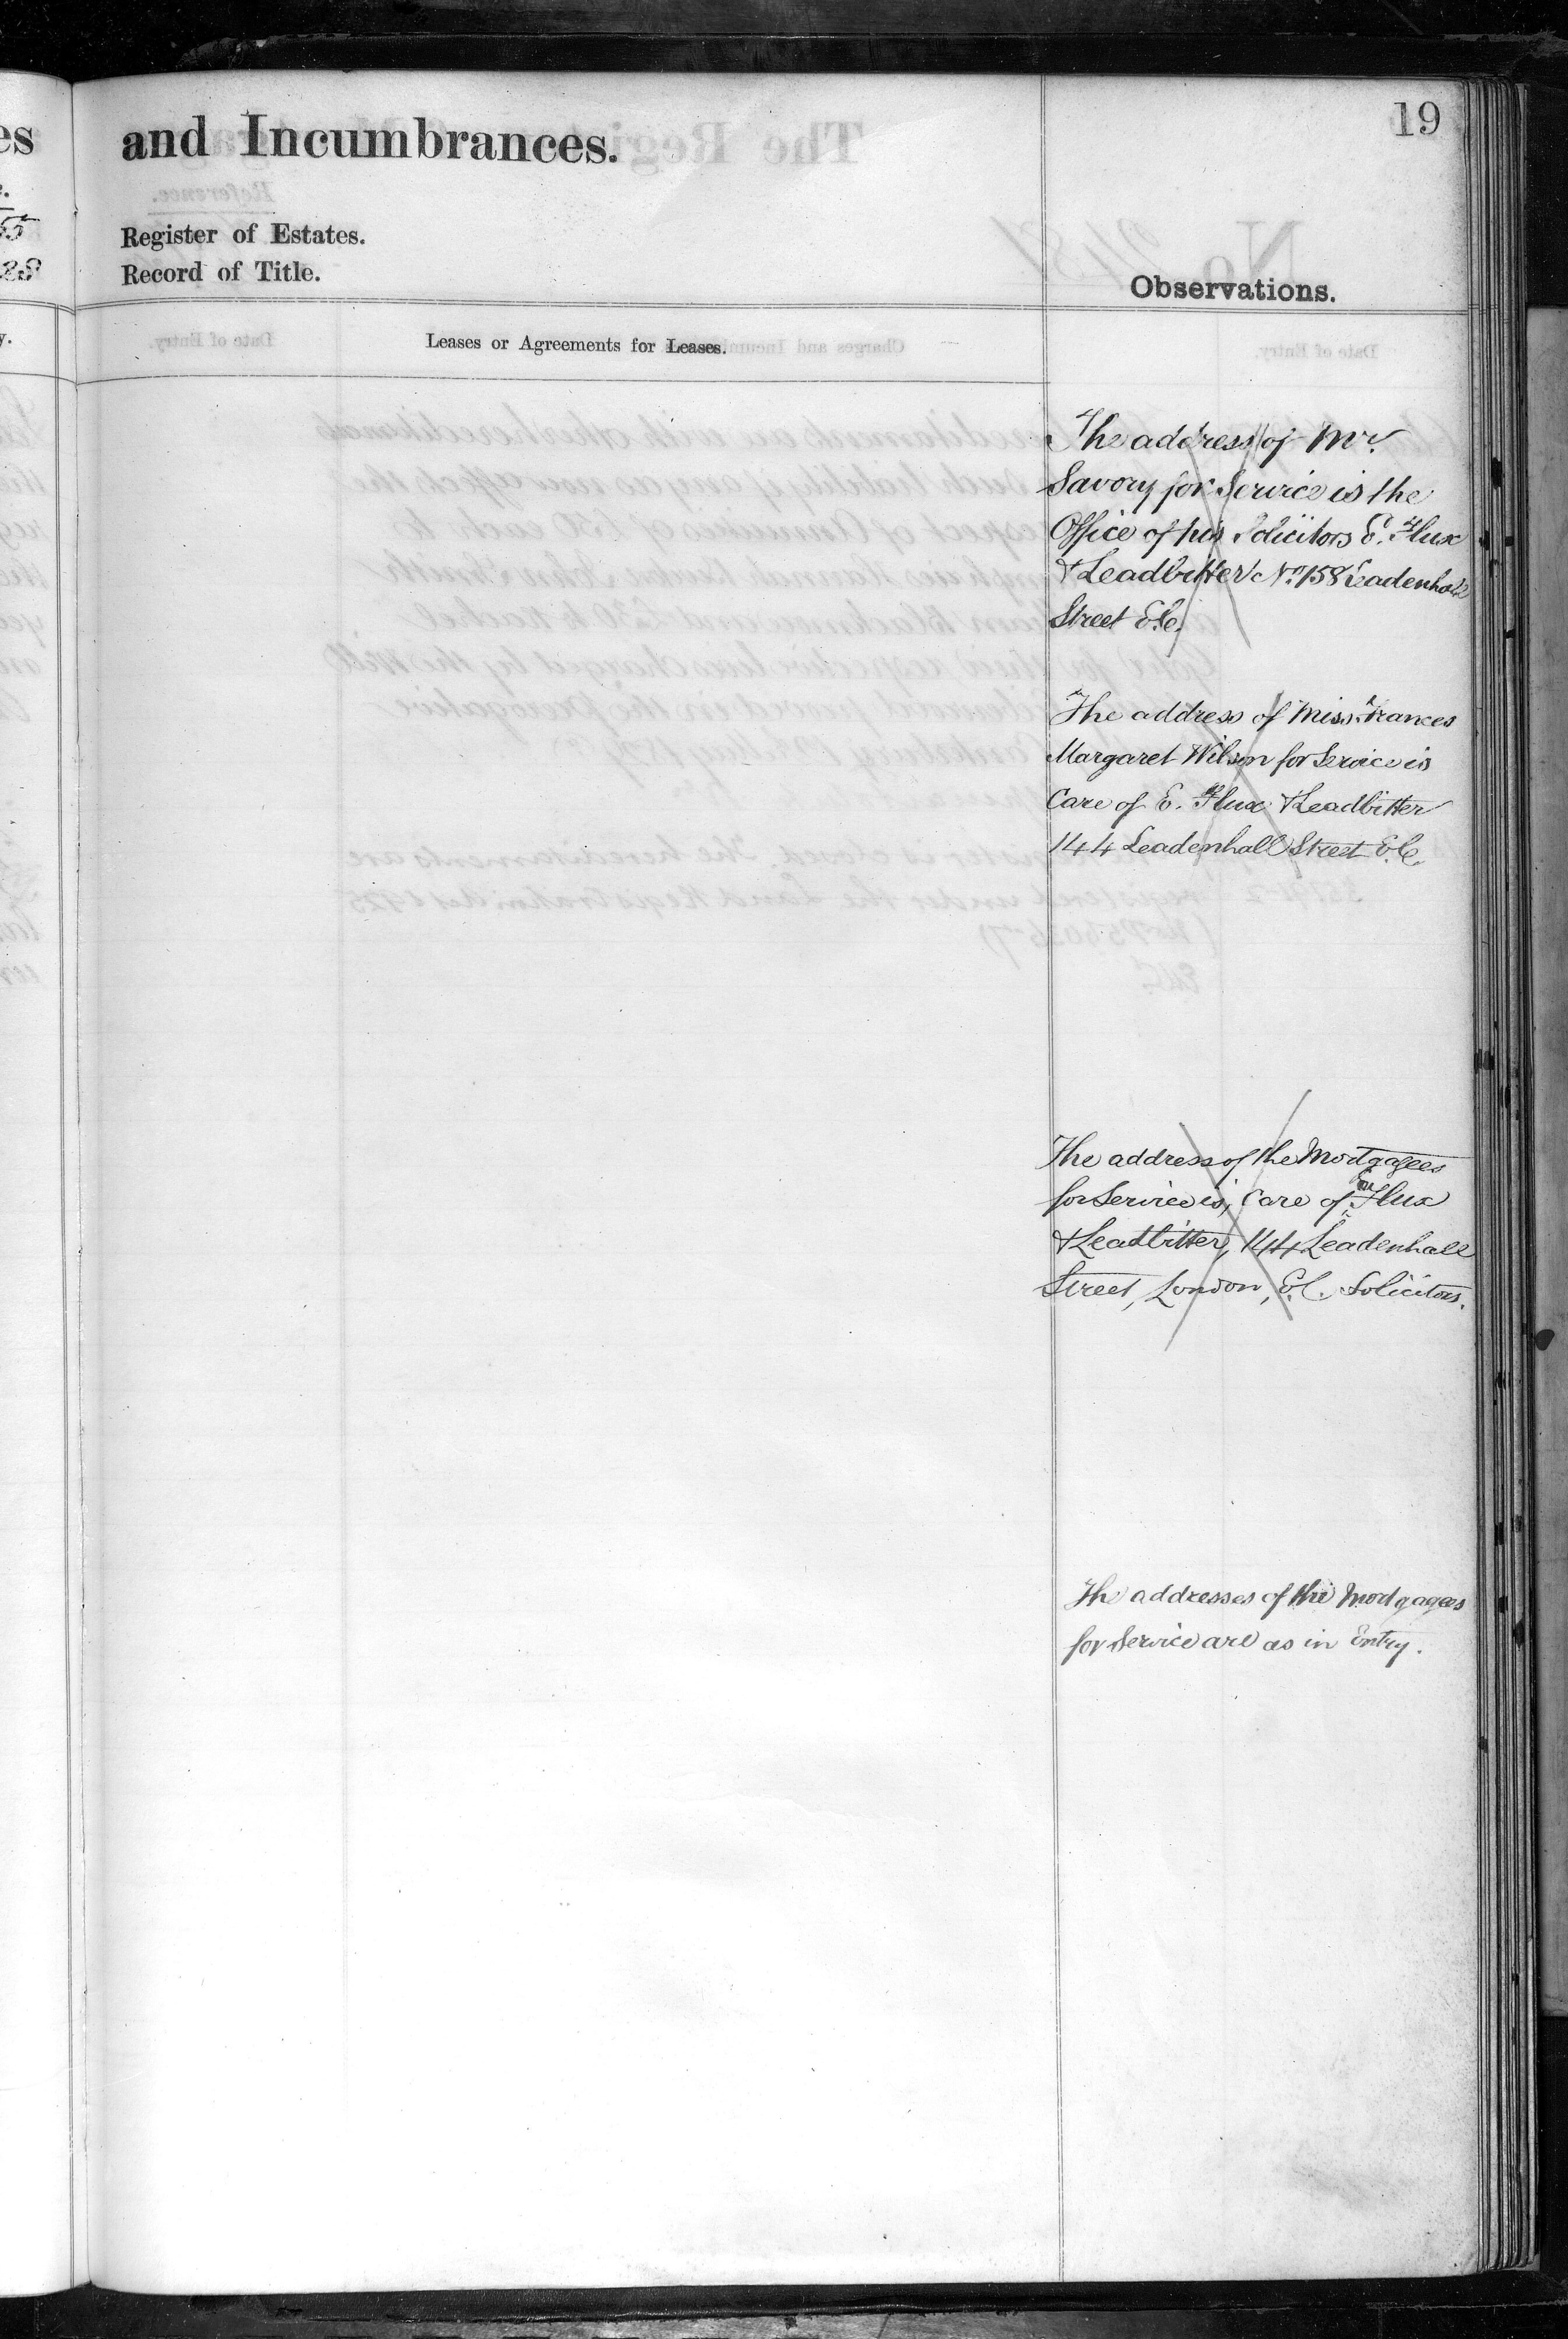 19
es
and Incumbrances.
Register of Estates.
Record of Title.
Observations.
Leases or Agreements for Leases.
The address of Mr.
Savory for Service is the
Office of his Solicitors E. Flux
& Leadbitter No. 158 Leadenhall
Street E.C.
The address of Miss Frances
Margaret Wilson for Service is
Care of E. Flux & Leadbitter
144 Leadenhall Street E.C.
The address of the Mortgagees
for Service is, Care of Flux
& Leadbitter, 144 Leadenhall
Street, London, E.C. Solicitors.
The addresses of the Mortgagees
for Service are as in Entry.